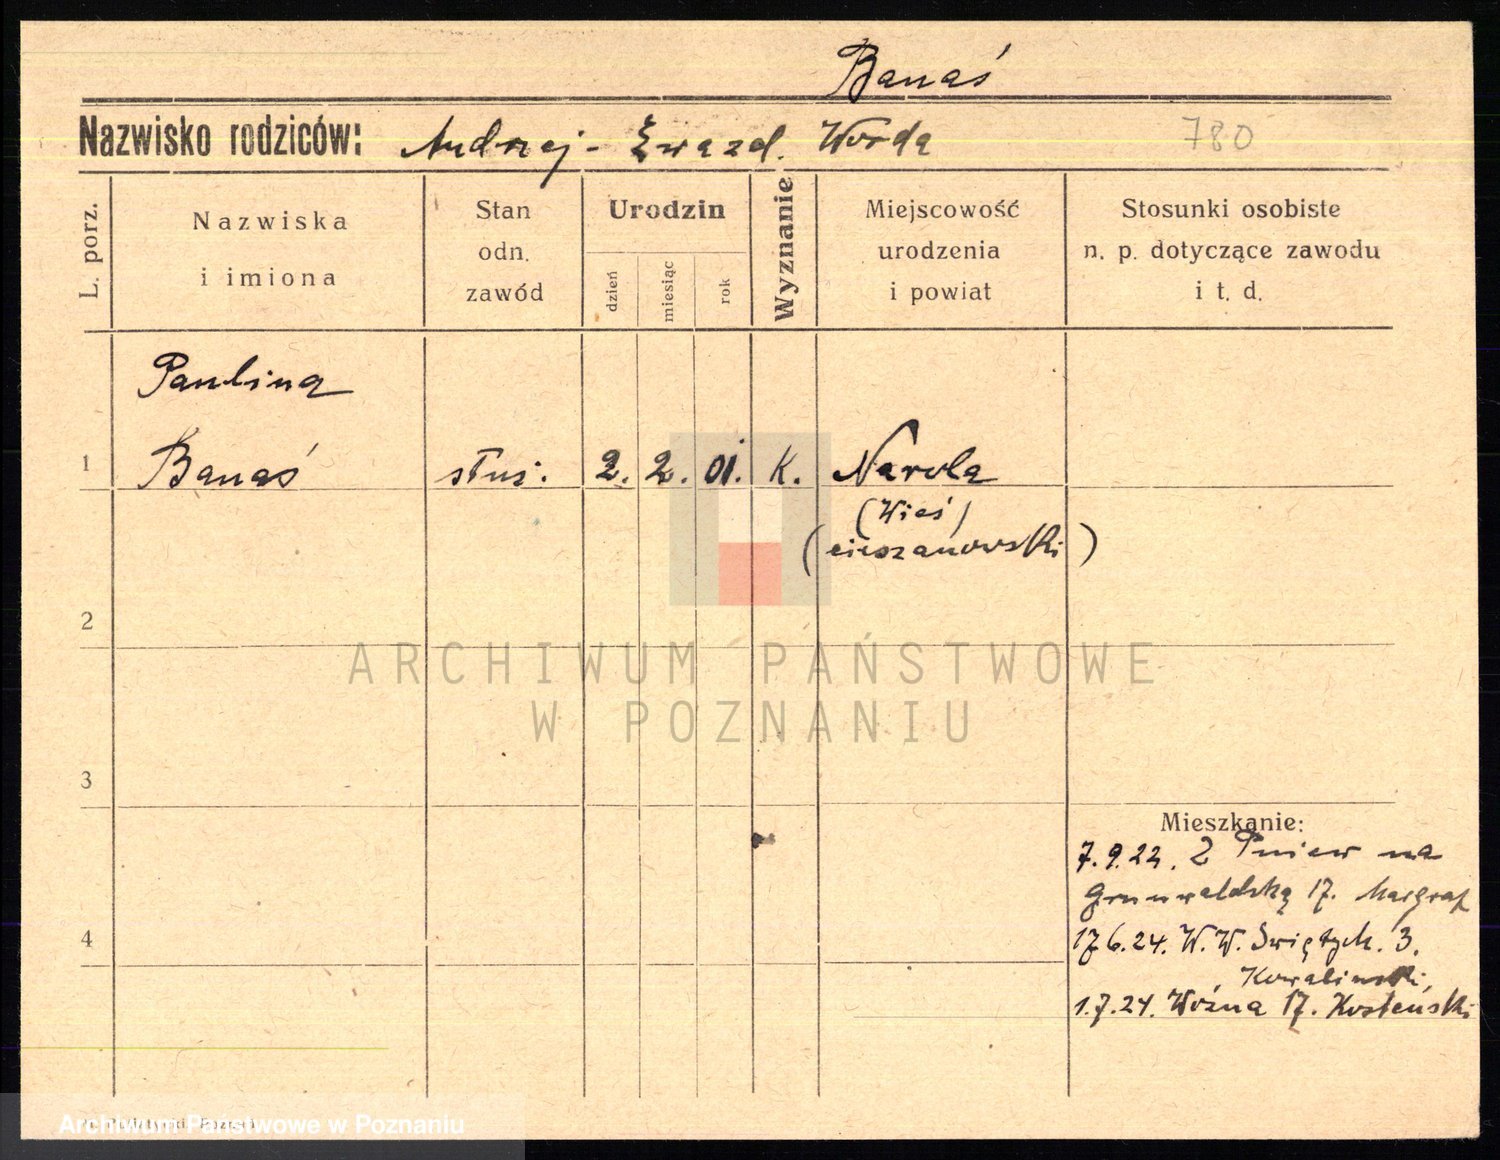 Banaś
Nazwisko rodziców: Andrzej - Worda
780
L. porz.
Nazwiska
i imiona
Stan
odn.
zawód
Urodzin
dzień
miesiąc
rok
Wyznanie
Miejscowość
urodzenia
i powiat
Stosunki osobiste
n. p. dotyczące zawodu
i t. d.
Paulina
1 Banaś służ. 2. 2. 01. K. Narola
(Wieś)
(cieszanowski)
2
ARCHIWUM PAŃSTWOWE
W POZNANIU
3
Mieszkanie:
7.9.22. Z Pniew na
Grunwaldską 17. Margraf
4
17 6.24. W. W. Świętych. 3.
Kowalinski,
1.7.24. Woźna 17. Kosteński
Archiwum Państwowe w Poznaniu